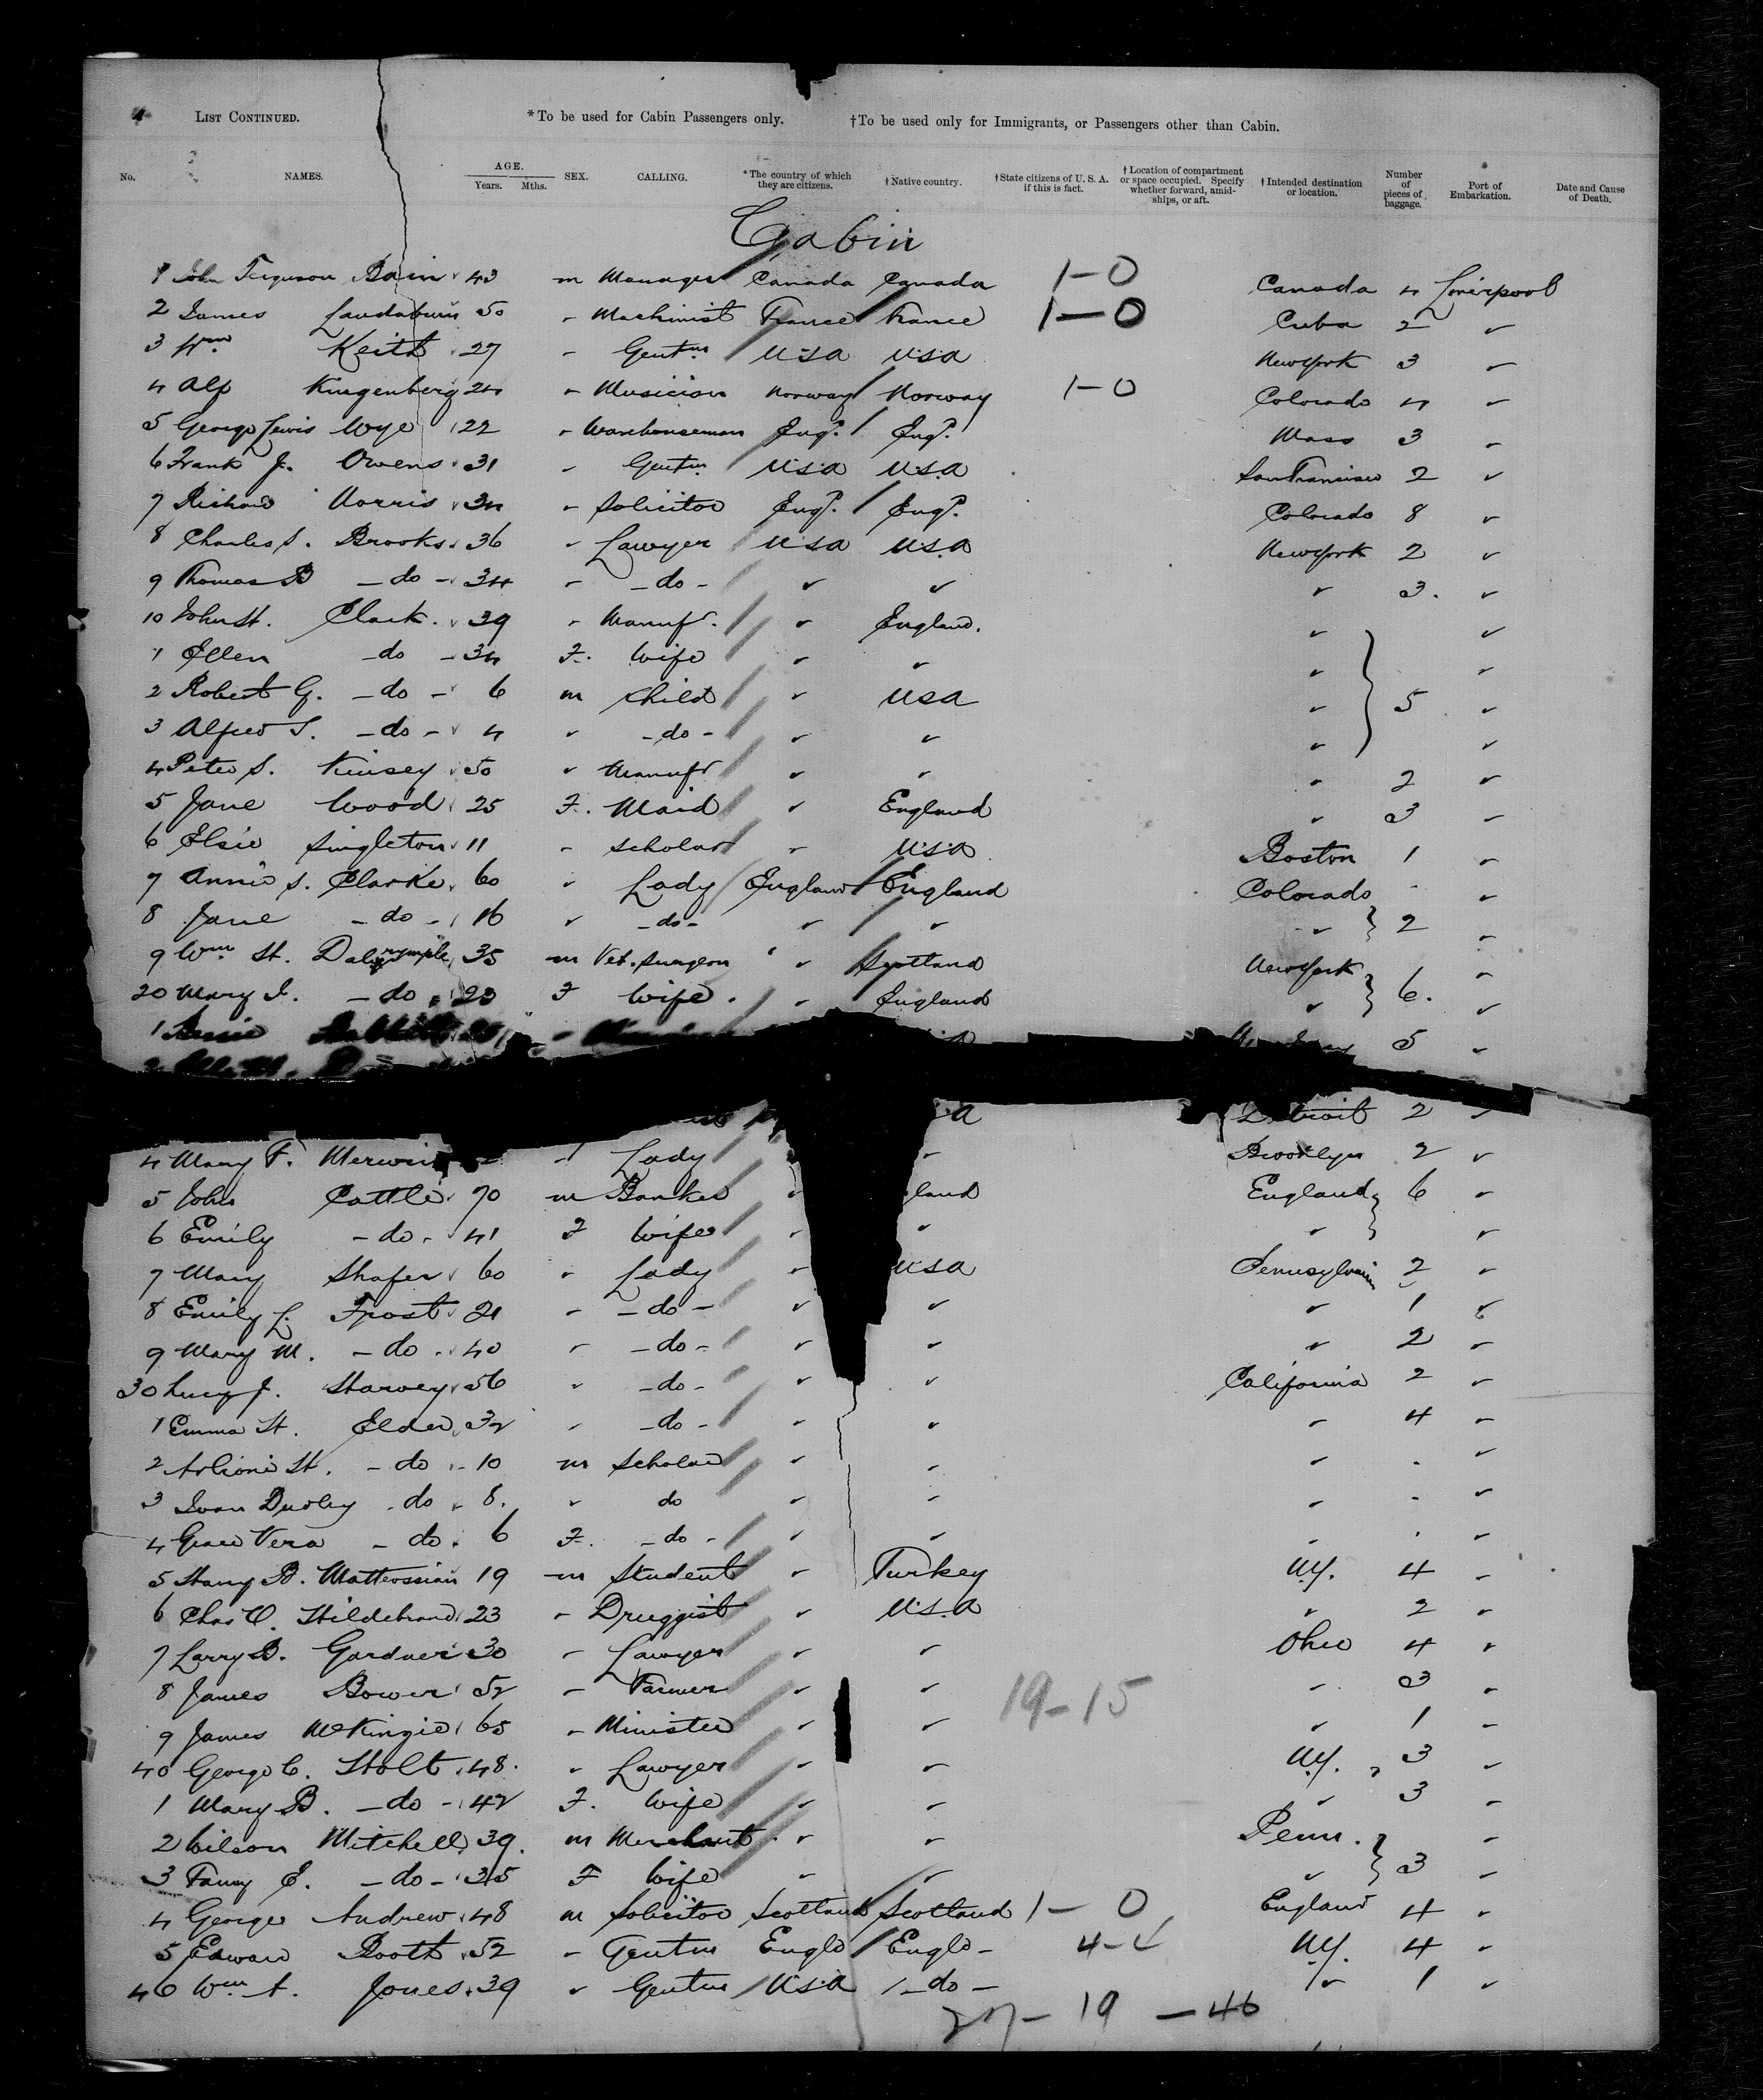 4 LIST CONTINUED. *To be used for Cabin Passengers only. †To be used only for Immigrants, or Passengers other than Cabin.
No. NAMES. AGE. Years. Mths. SEX. CALLING. *The country of which they are citizens. †Native country. †State citizens of U. S. A. if this is fact. †Location of compartment or space occupied. Specify whether forward, amidships, or aft. †Intended destination or location. Number of pieces of baggage. Port of Embarkation. Date and Cause of Death.
Cabin
1 John Ferguson Bain 43 m Manager Canada Canada 1-0 Canada 4 Liverpool
2 James 50 " Machinist France France 1-0 Cuba 2 "
3 Wm Keith 27 " Gentm USA USA New York 3 "
4 Alf Kingenberg 24 " Musician Norway Norway 1-0 Colorado 4 "
5 George Lewis Wye 22 " Warehouseman Engd. Engd. Mass 3 "
6 Frank J. Owens 31 " Gentm USA USA San Francisco 2 "
7 Richard Norris 34 " Solicitor Engd. Engd. Colorado 8 "
8 Charles S. Brooks 36 " Lawyer USA USA New York 2 "
9 Thomas B - do - 34 " - do - " " " 3. "
10 John H. Clark. 39 " Manufr. " England. " "
1 Ellen - do - 34 F. Wife " " " "
2 Robert G. - do - 6 m Child " USA " 5 "
3 Alfred S. - do - 4 " - do - " " " "
4 Peter S. Kinsey 50 " Manufr " " " 2 "
5 Jane Wood 25 F. Maid " England " 3 "
6 Elsie Singleton 11 " Scholar " USA Boston 1 "
7 Annie S. Clarke 60 " Lady England England Colorado "
8 Jane - do - 16 " - do - " " " 2 "
9 Wm H. Dalrymple 35 m Vet. Surgeon " Scotland New York "
20 Mary I. - do - 23 F Wife. " England " 6. "
1 5 "
Detroit 2 "
4 Mary F. Merwin " Lady " Brooklyn 2 "
5 John Cattle 70 m Banker " land England 6 "
6 Emily - do - 41 F Wife " " " "
7 Mary Shafer 60 " Lady " USA Pennsylvania 2 "
8 Emily L. Frost 21 " - do - " " " 1 "
9 Mary M. - do - 40 " - do - " " " 2 "
30 Lucy J. Harvey 56 " - do - " " California 2 "
1 Emma H. Elder 32 " - do - " " " 4 "
2 H. - do - 10 m Scholar " " " "
3 Ivan Dudley - do - 8. " do " " " "
4 Grace Vera - do - 6 F. - do - " " " "
5 Harry B. Matteossian 19 m Student " Turkey N.Y. 4 "
6 Chas O. Hildebrand 23 " Druggist " U.S.A " 2 "
7 Larry D. Gardner 30 " Lawyer " " Ohio 4 "
8 James Bower 52 " Farmer " " 19-15 " 3 "
9 James McKingie 65 " Minister " " " 1 "
40 George C. Holt 48. " Lawyer " " N.Y. 3 "
1 Mary B. - do - 42 F. Wife " " " 3 "
2 Wilson Mitchell 39. m Merchant " " Penn. "
3 Fanny E. - do - 35 F Wife " " " 3 "
4 George Andrew 48 m Solicitor Scotland Scotland 1-0 England 4 "
5 Edward Booth 52 " Gentm Engld Engld - N.Y. 4 "
46 Wm A. Jones 39 " Gentm USA - do - " 1 "
27-19-46